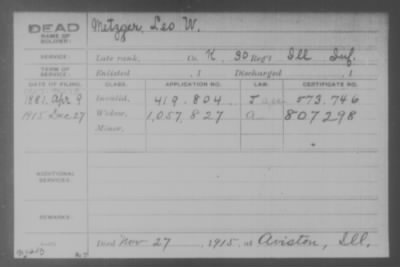 DEAD
NAME OF SOLDIER: Metzger, Leo W.
SERVICE: Late rank, Co. K, 30 Reg't Ill. Inf.
TERM OF SERVICE: Enlisted , 1 Discharged , 1
DATE OF FILING. CLASS. APPLICATION NO. LAW. CERTIFICATE NO.
1881, Apr 9 Invalid, 419.804 573.746
1915 Dec 27 Widow, 1,057,827 a 807298
Minor,
ADDITIONAL SERVICES:
REMARKS:
Died Nov 27, 1915, at Aviston, Ill.